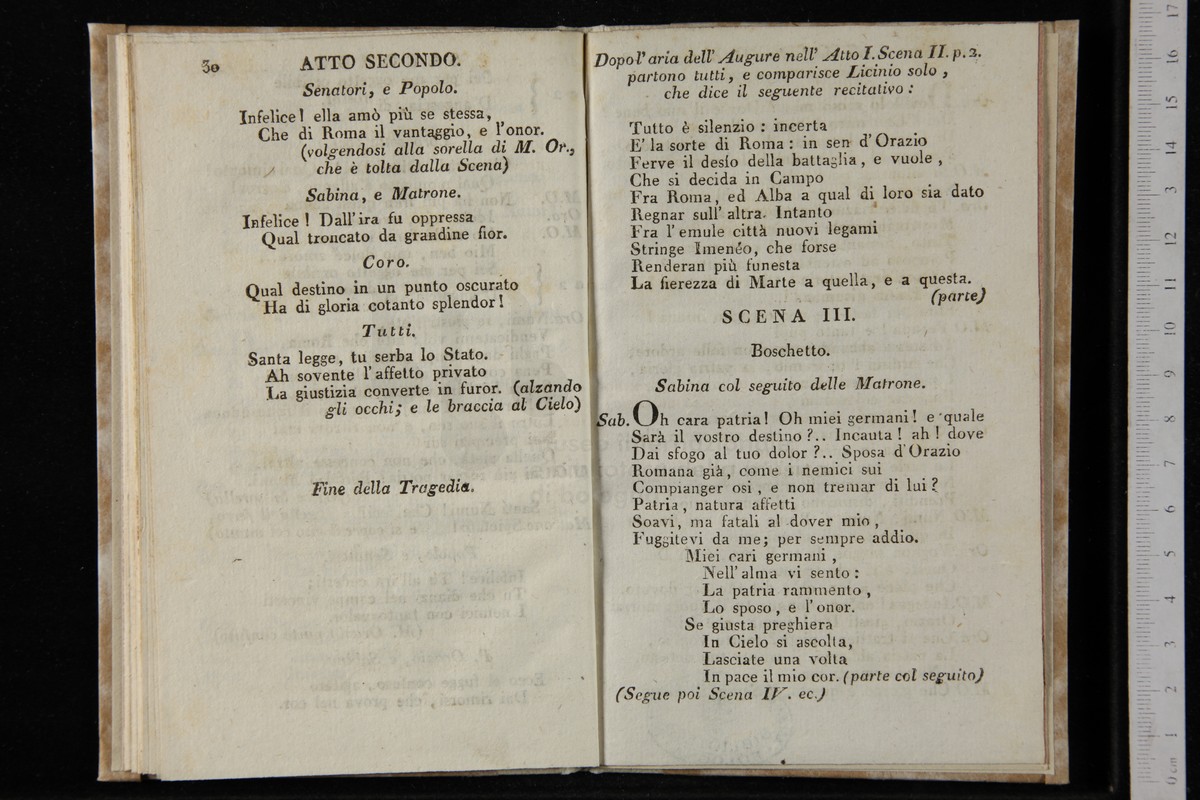 30
ATTO SECONDO.
Senatori, e Popolo.
Infelice! ella amò più se stessa,
Che di Roma il vantaggio, e l'onor.
(volgendosi alla sorella di M. Or.,
che è tolta dalla Scena)
Sabina, e Matrone.
Infelice! Dall'ira fu oppressa
Qual troncato da grandine fior.
Coro.
Qual destino in un punto oscurato
Ha di gloria cotanto splendor!
Tutti.
Santa legge, tu serba lo Stato.
Ah sovente l'affetto privato
La giustizia converte in furor. (alzando
gli occhi; e le braccia al Cielo)
Fine della Tragedia.
Dopo l'aria dell'Augure nell' Atto I. Scena II. p. 2.
partono tutti, e comparisce Licinio solo,
che dice il seguente recitativo:
Tutto è silenzio: incerta
E' la sorte di Roma: in sen d'Orazio
Ferve il desío della battaglia, e vuole,
Che si decida in Campo
Fra Roma, ed Alba a qual di loro sia dato
Regnar sull' altra. Intanto
Fra l'emule città nuovi legami
Stringe Imenéo, che forse
Renderan più funesta
La fierezza di Marte a quella, e a questa.
(parte)
SCENA III.
Boschetto.
Sabina col seguito delle Matrone.
Sab. Oh cara patria! Oh miei germani! e quale
Sarà il vostro destino?.. Incauta! ah! dove
Dai sfogo al tuo dolor?.. Sposa d'Orazio
Romana già, come i nemici sui
Compianger osi, e non tremar di lui?
Patria, natura affetti
Soavi, ma fatali al dover mio,
Fuggitevi da me; per sempre addio.
Miei cari germani,
Nell'alma vi sento:
La patria rammento,
Lo sposo, e l'onor.
Se giusta preghiera
In Cielo si ascolta,
Lasciate una volta
In pace il mio cor. (parte col seguito)
(Segue poi Scena IV. ec.)
17
16
15
14
13
12
11
10
9
8
7
6
5
4
3
2
1
0 cm